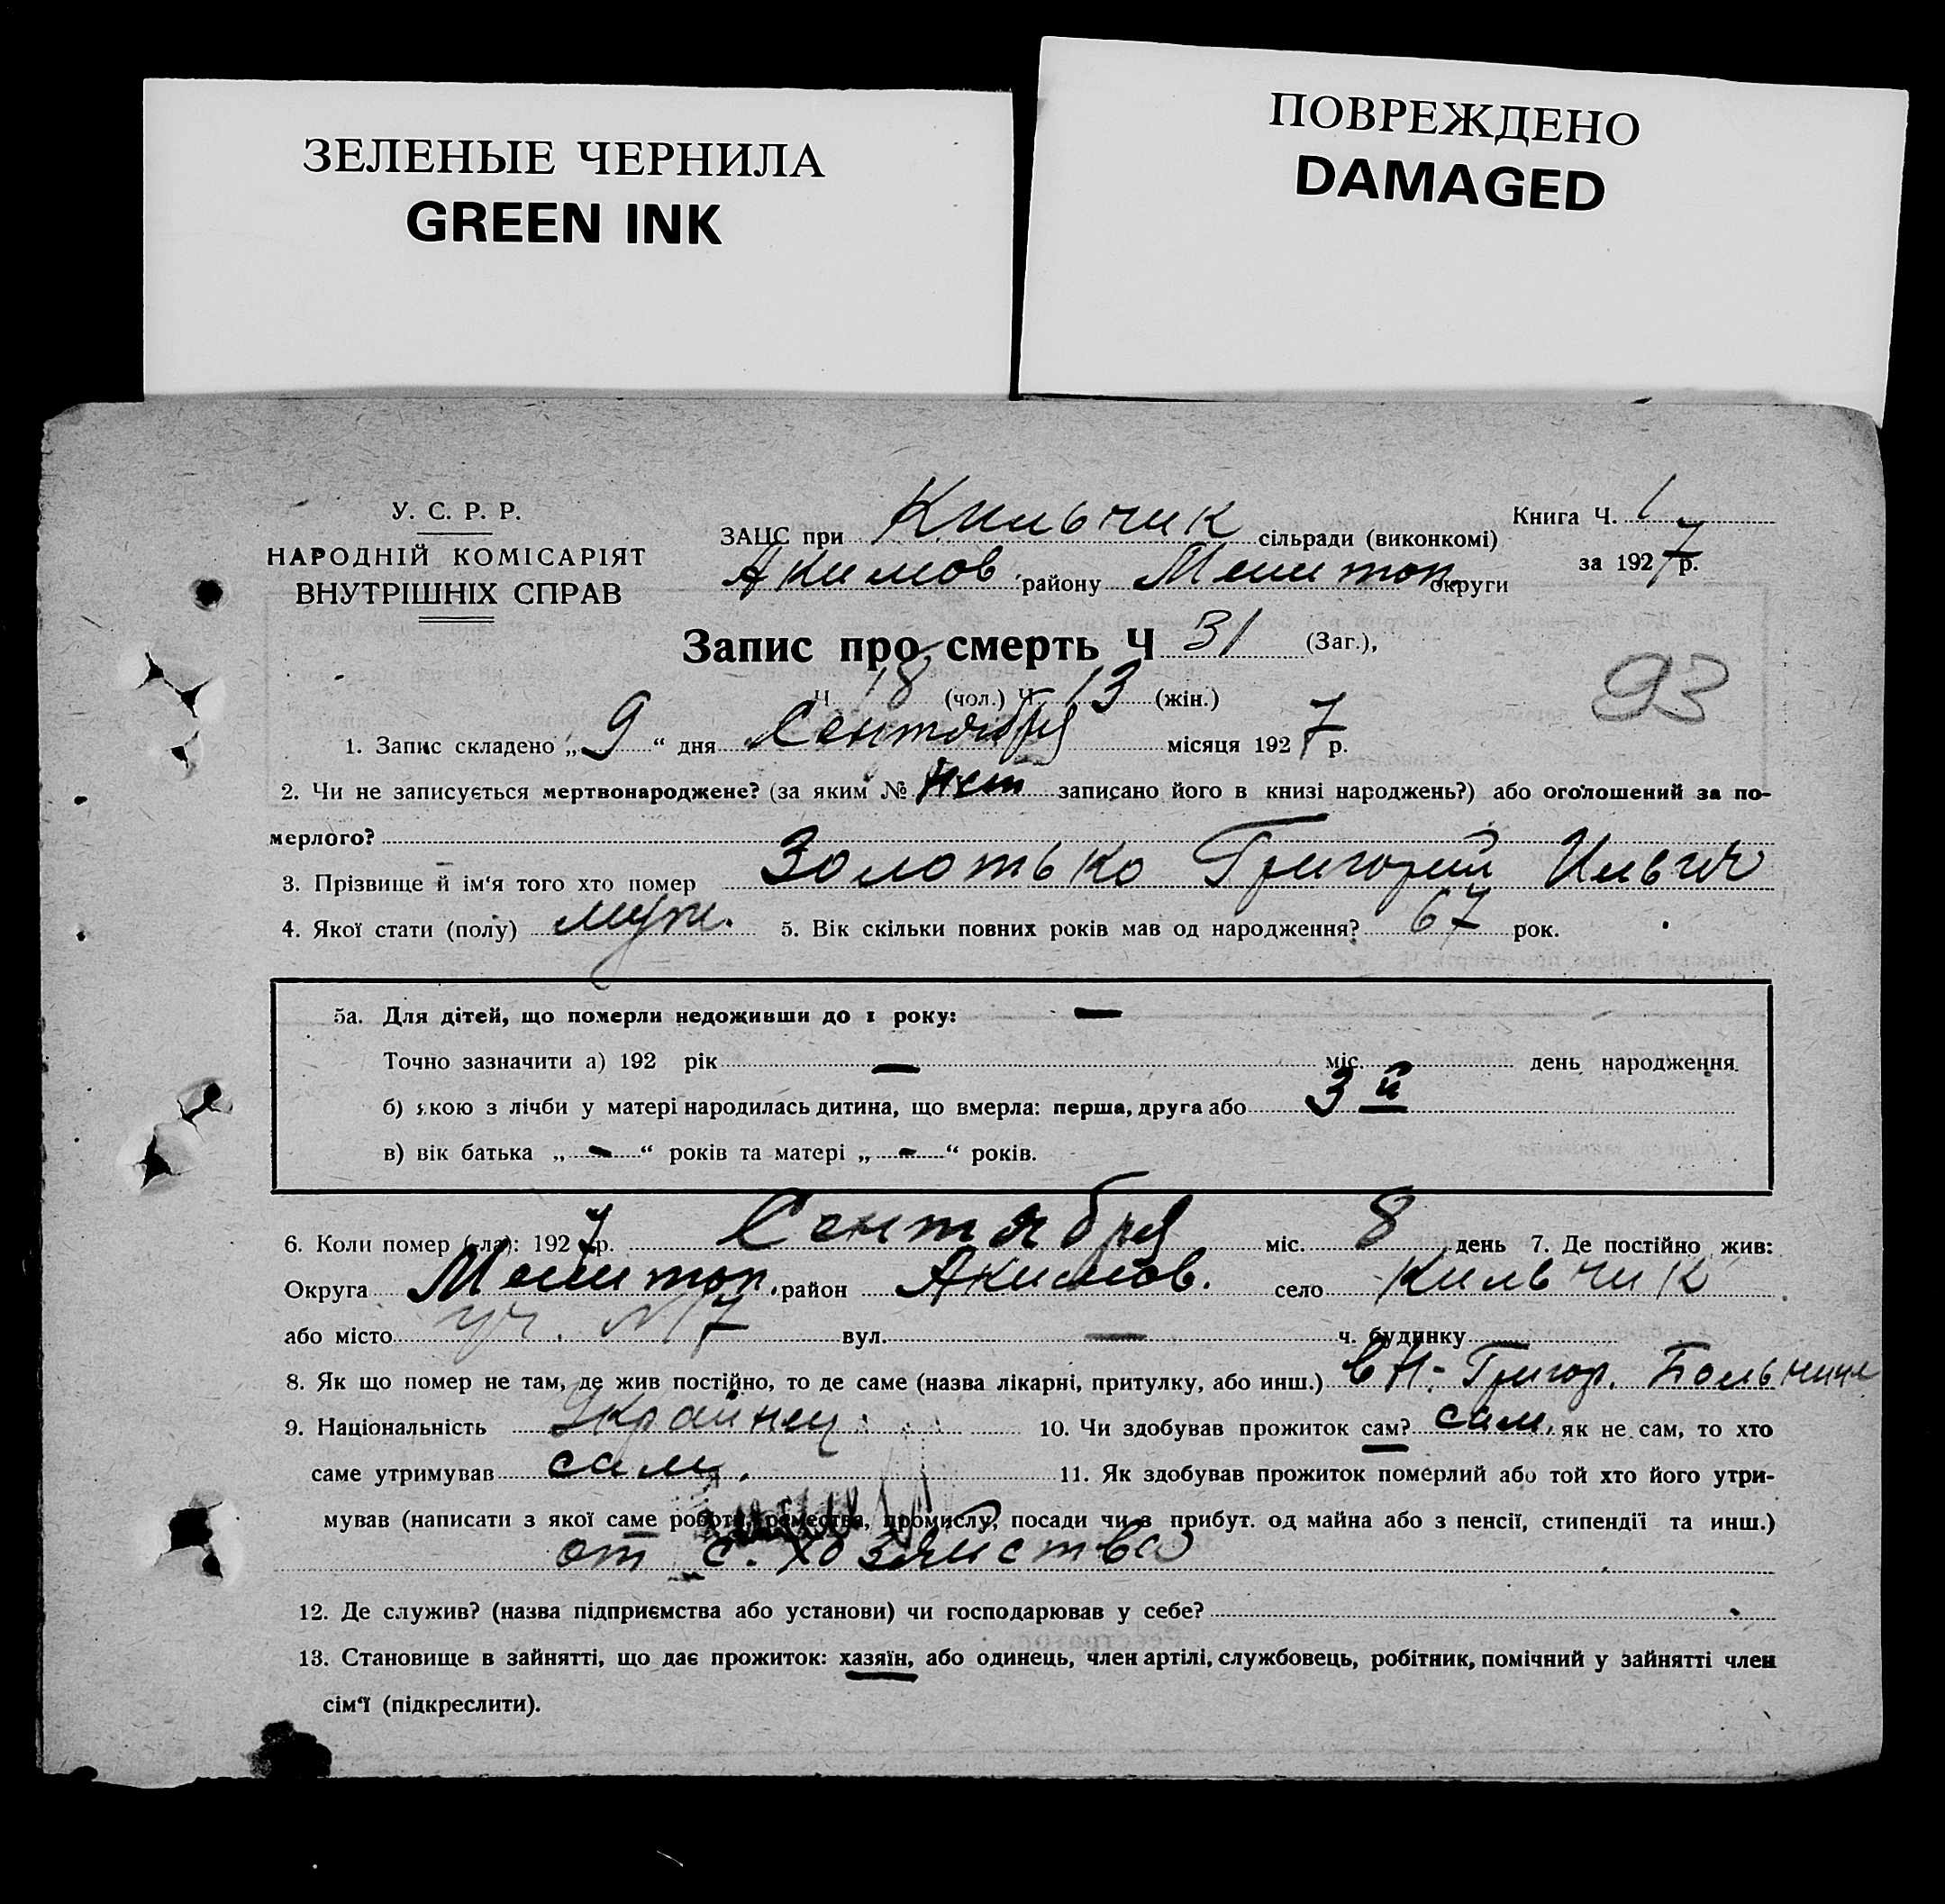 ЗЕЛЕНЫЕ ЧЕРНИЛА
GREEN INK
ПОВРЕЖДЕНО
DAMAGED
У. С. Р. Р.
НАРОДНІЙ КОМІСАРІЯТ
ВНУТРІШНІХ СПРАВ
ЗАЦС при Кильчик сільради (виконкомі)
Акимов району Мелитоп. округи
Книга Ч. 1
за 1927 р.
Запис про смерть Ч 31 (Заг.),
Ч 18 (чол.) Ч 13 (жін.)
93
1. Запис складено „ 9 “ дня Сентября місяця 1927 р.
2. Чи не записується мертвонароджене? (за яким № нет записано його в книзі народжень?) або оголошений за по-
мерлого?
3. Прізвище й ім‘я того хто помер Золотько Григорий Ильич
4. Якої стати (полу) муж. 5. Вік скільки повних років мав од народження? 67 рок.
5а. Для дітей, що померли недоживши до 1 року: —
Точно зазначити а) 192 рік — міс. день народження
б) якою з лічби у матері народилась дитина, що вмерла: перша, друга або 3й
в) вік батька „ - “ років та матері „ - “ років.
6. Коли помер (-ла): 1927 р. Сентября міс. 8 день 7. Де постійно жив:
Округа Мелитоп. район Акимов. село Кильчик
або місто уч. №7 вул. — ч. будинку
8. Як що помер не там, де жив постійно, то де саме (назва лікарні, притулку, або инш.) в Н-Григор. Больнице
9. Національність Украинец 10. Чи здобував прожиток сам? сам, як не сам, то хто
саме утримував сам. 11. Як здобував прожиток померлий або той хто його утри-
мував (написати з якої саме роботи, ремества, промислу, посади чи з прибут. од майна або з пенсії, стипендії та инш.)
от с. хозяйства
12. Де служив? (назва підприємства або установи) чи господарював у себе?
13. Становище в зайнятті, що дає прожиток: хазяїн, або одинець, член артілі, службовець, робітник, помічний у зайнятті член
сім‘ї (підкреслити).